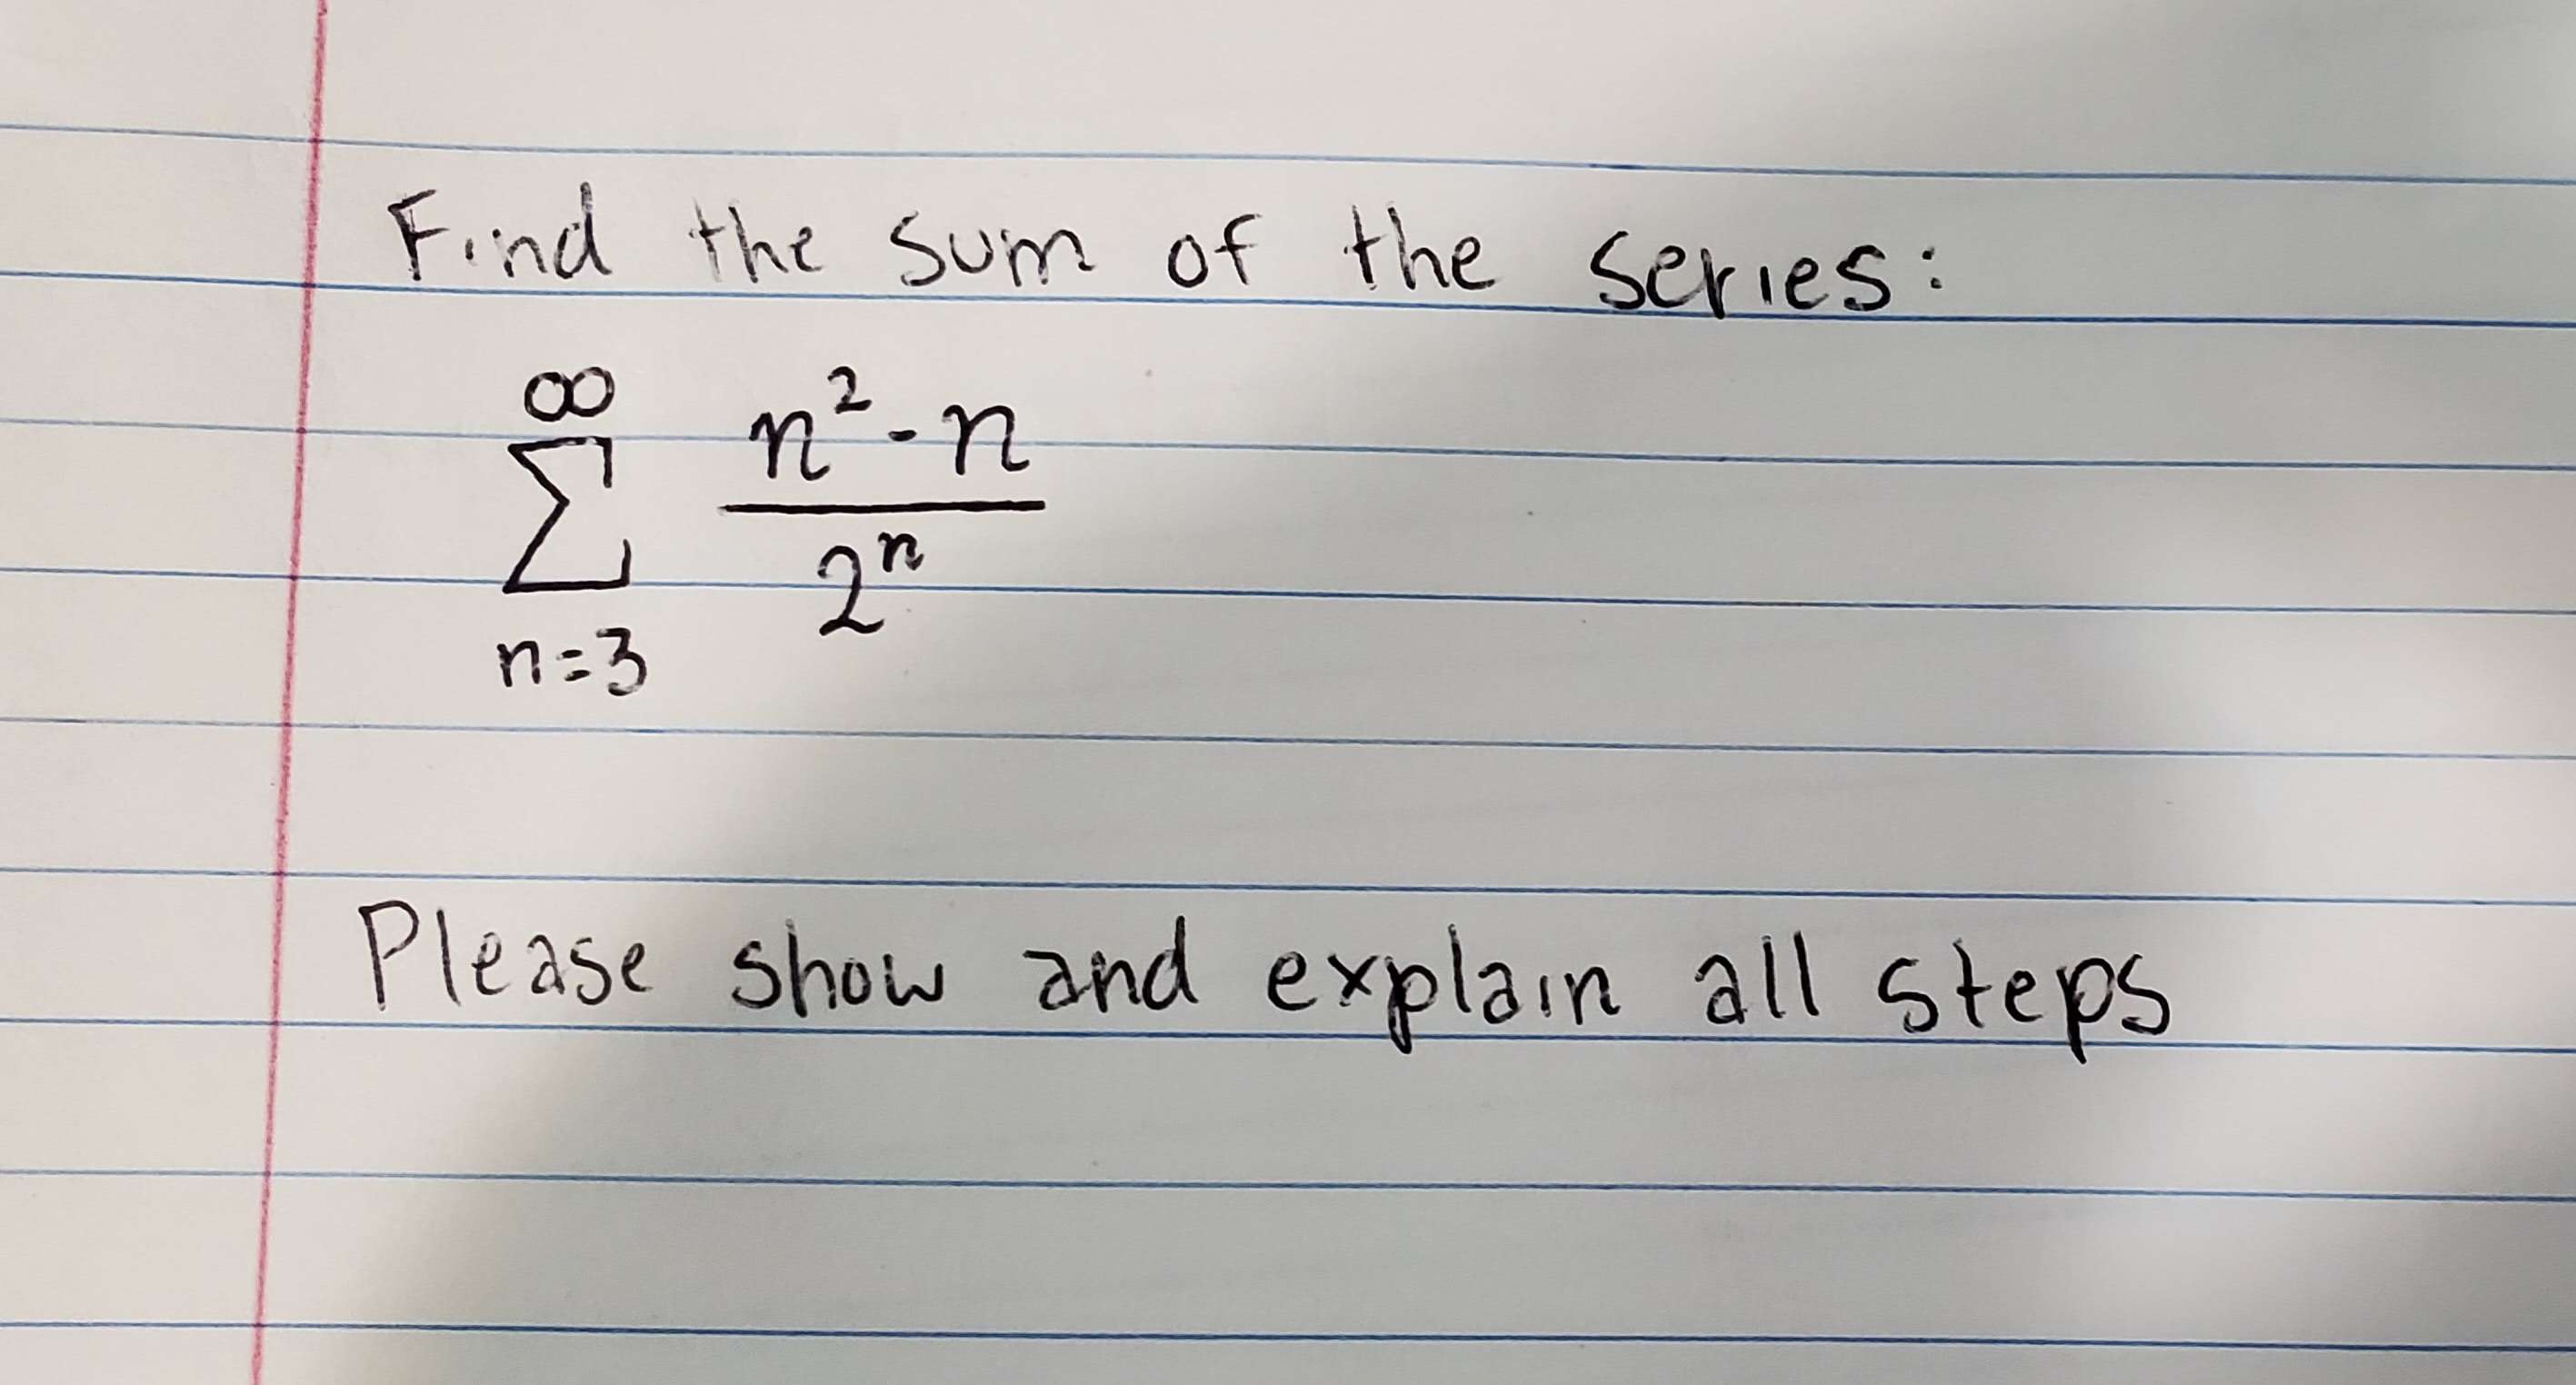 Find the sum of the series:
∞
∑ n² - n / 2ⁿ
n=3
Please show and explain all steps